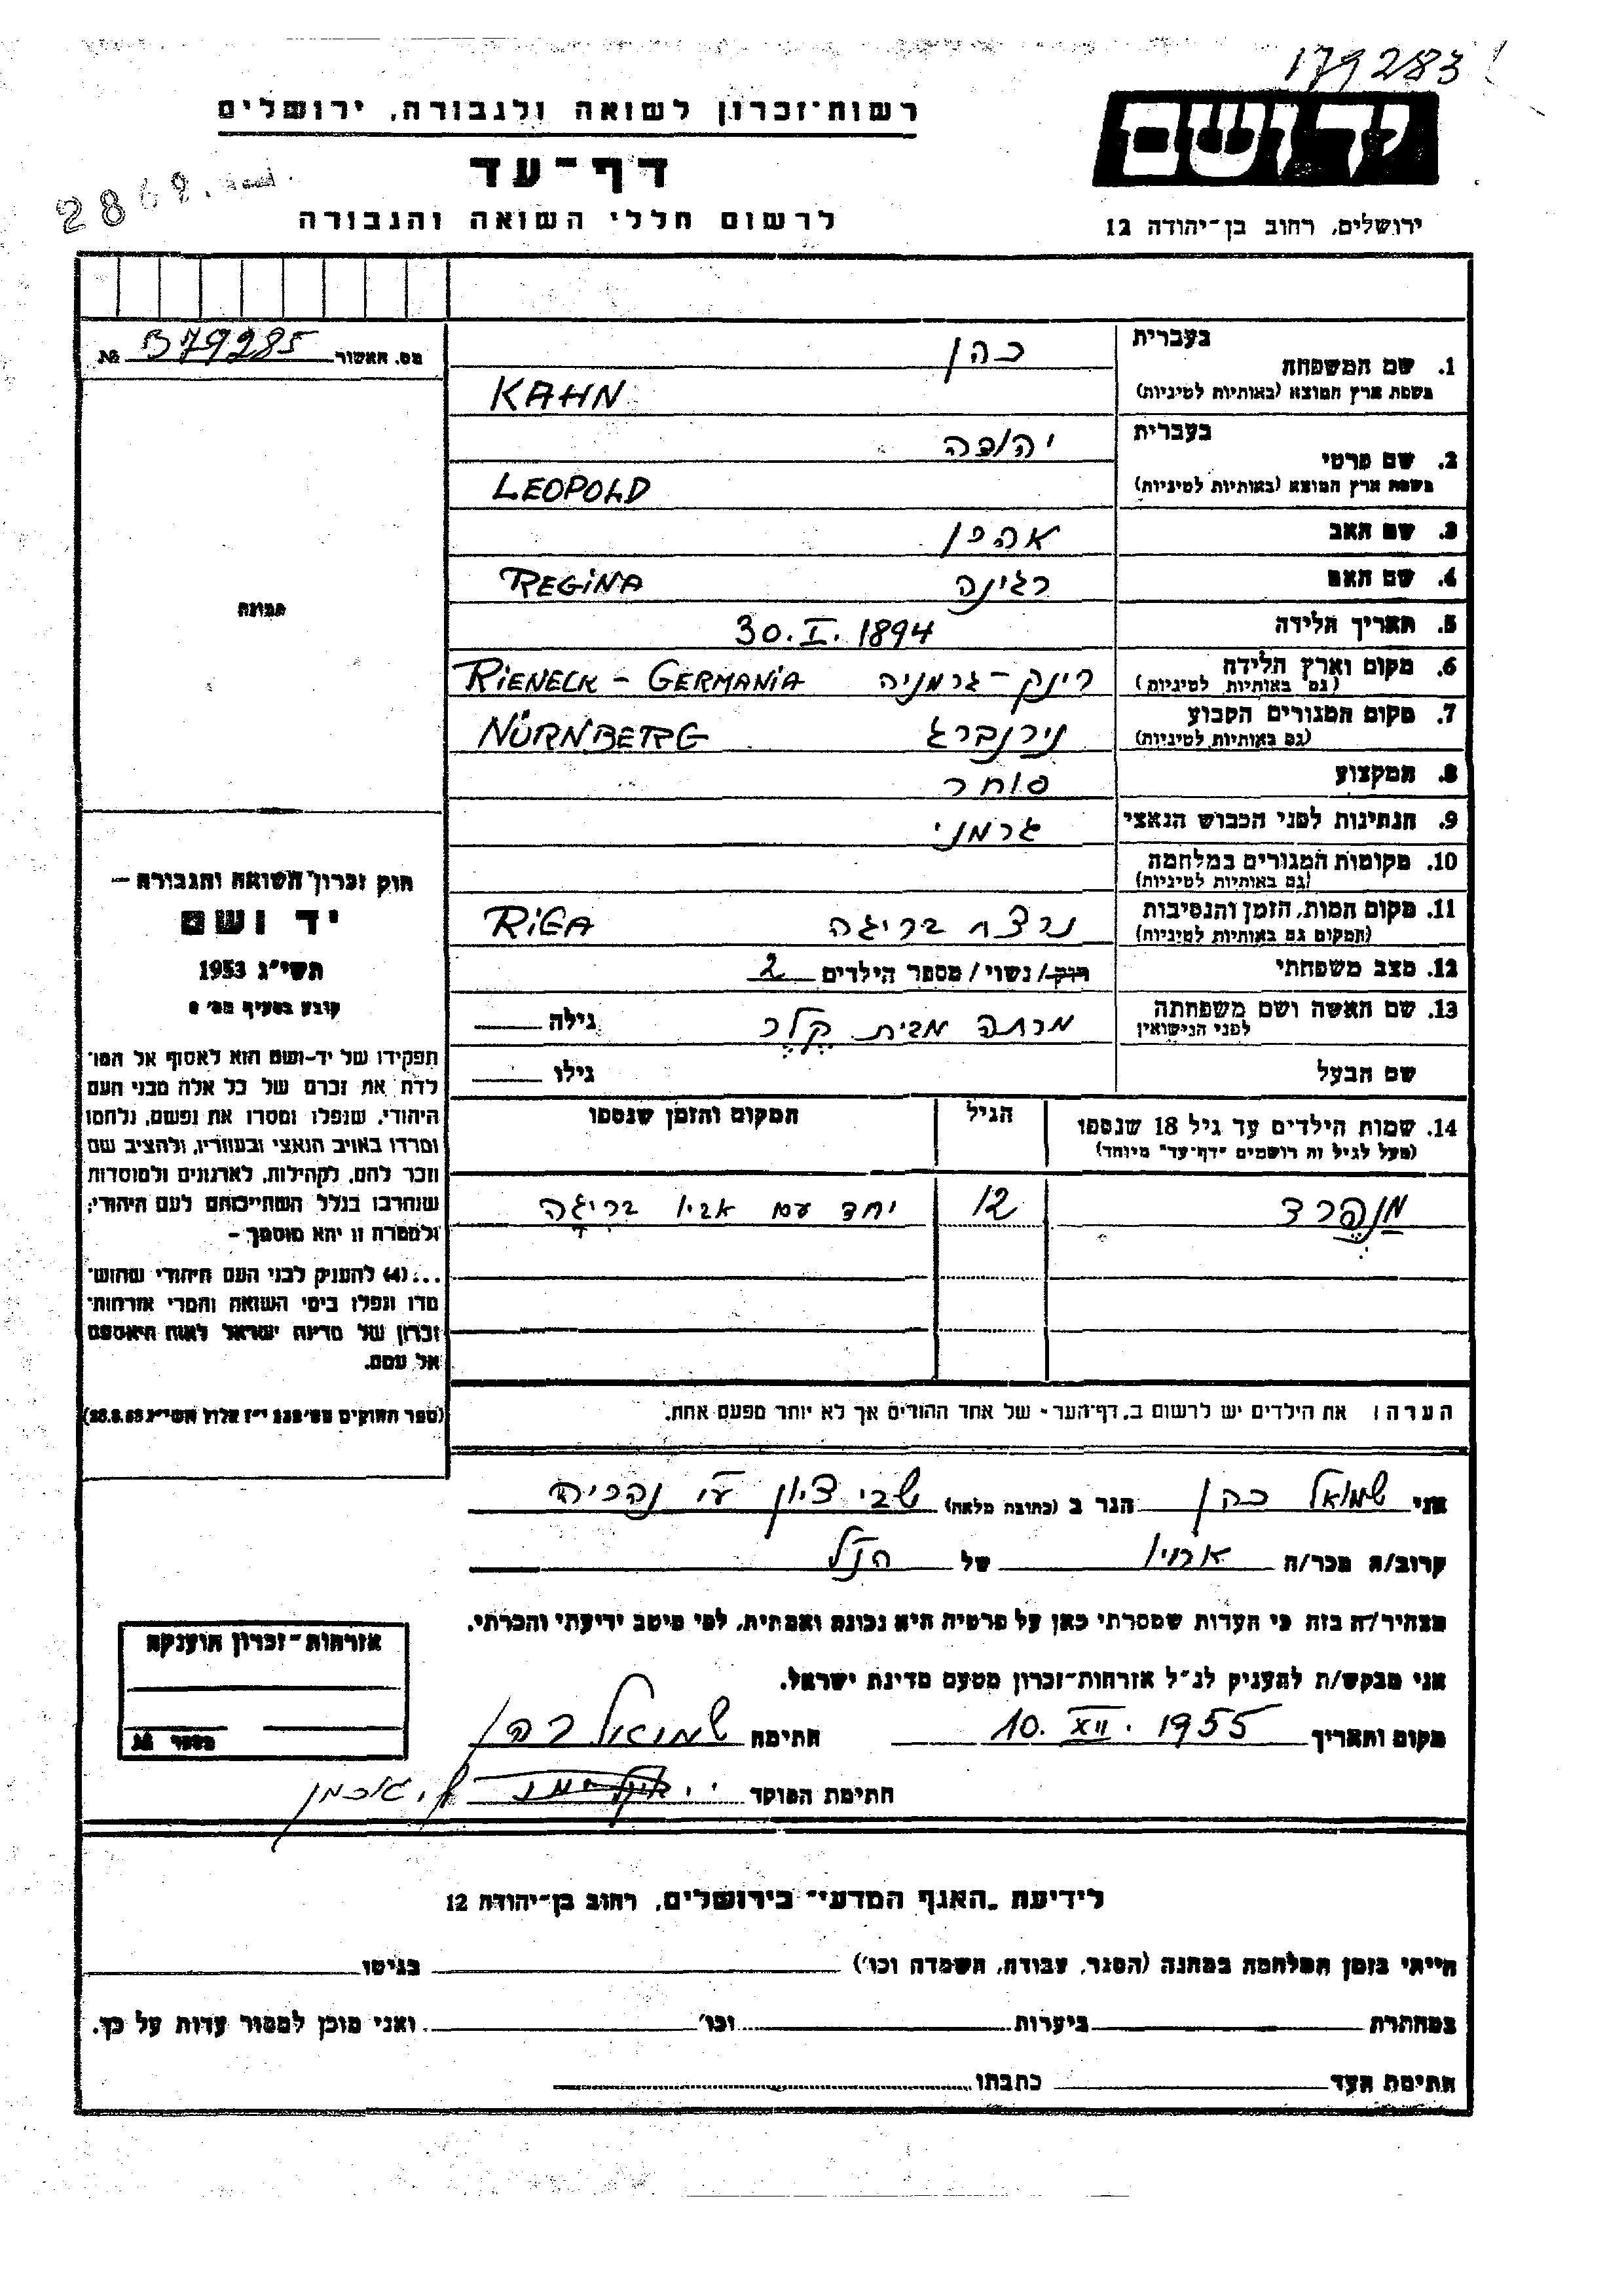 179283
רשות־זכרון לשואה ולגבורה, ירושלים
יד ושם
דף־עד
2869
לרשום חללי השואה והגבורה
ירושלים, רחוב בן־יהודה 12
מס. האשור B79285 №
1. שם המשפחה בעברית כהן
בשפת ארץ המוצא (באותיות לטיניות) KAHN
2. שם פרטי בעברית יהודה
בשפת ארץ המוצא (באותיות לטיניות) LEOPOLD
3. שם האב אהרן
4. שם האם רגינה REGINA
5. תאריך הלידה 30. I. 1894
6. מקום וארץ הלידה רינק – גרמניה RIENECK – GERMANIA
(גם באותיות לטיניות)
7. מקום המגורים הקבוע נירנברג NÜRNBERG
(גם באותיות לטיניות)
8. המקצוע סוחר
9. הנתינות לפני הכבוש הנאצי גרמני
10. מקומות המגורים במלחמה
(גם באותיות לטיניות)
11. מקום המות, הזמן והנסיבות נרצח בריגה RIGA
(המקום גם באותיות לטיניות)
12. מצב משפחתי רוק/ נשוי/ מספר הילדים 2
13. שם האשה ושם משפחתה מרתה מבית קלר גילה
לפני הנישואין
שם הבעל גילו
14. שמות הילדים עד גיל 18 שנספו הגיל המקום והזמן שנספו
(מעל לגיל זה רושמים "דף־עד" מיוחד)
מנפרד 12 יחד עם אביו בריגה
תמונה
חוק זכרון השואה והגבורה –
יד ושם
תשי"ג 1953
קובע בסעיף מס׳ 2
תפקידו של יד-ושם הוא לאסוף אל המו־
לדת את זכרם של כל אלה מבני העם
היהודי, שנפלו ומסרו את נפשם, נלחמו
ומרדו באויב הנאצי ובעוזריו, ולהציב שם
וזכר להם, לקהילות, לארגונים ולמוסדות
שנחרבו בגלל השתייכותם לעם היהודי;
ולמטרה זו יהא מוסמך –
...(4) להעניק לבני העם היהודי שהוש־
מדו ונפלו בימי השואה והמרי אזרחות־
זכרון של מדינת ישראל לאות היאספם
אל עמם.
(ספר החוקים מס׳ 132 י"ז אלול תשי"ג 28.8.53)
הערה: את הילדים יש לרשום ב„דף־העד" של אחד ההורים אך לא יותר מפעם אחת.
אני שמואל כהן הגר ב (כתובת מלאה) שבי ציון ע"י נהריה
קרוב/ה מכר/ה אחיו של הנ"ל
מצהיר/ה בזה כי העדות שמסרתי כאן על פרטיה היא נכונה ואמתית, לפי מיטב ידיעתי והכרתי.
אני מבקש/ת להעניק לנ"ל אזרחות־זכרון מטעם מדינת ישראל.
מקום ותאריך 10. XII. 1955 חתימה שמואל כהן
חתימת הפוקד
אזרחות־זכרון הוענקה
מספר №
לידיעת „האגף המדעי" בירושלים, רחוב בן־יהודה 12
הייתי בזמן המלחמה במחנה (הסגר, עבודה, השמדה וכו׳) בגיטו
במחתרת ביערות וכו׳ ואני מוכן למסור עדות על כך.
חתימת העד כתבתו